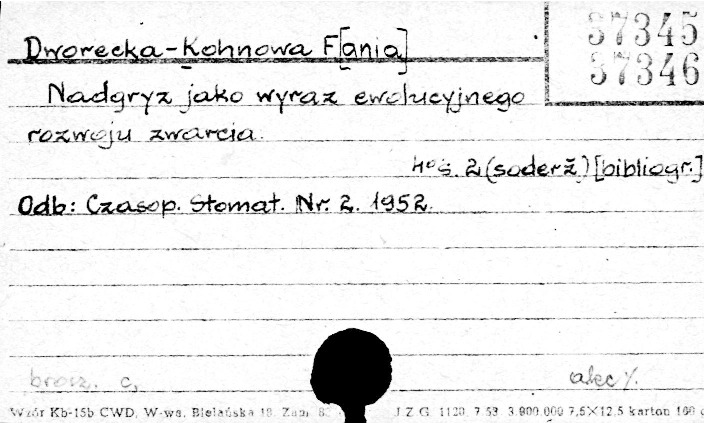 37345
37346
Dworecka-Kohnowa F[ania]
Nadgryz jako wyraz ewolucyjnego
rozwoju zwarcia.
4° s. 2 (soderž.) [bibliogr.]
Odb: Czasop. Stomat. Nr. 2. 1952.
brosz. c.
Wzór Kb-15b CWD, W-wa, Bielańska 18. Zam. J.Z.G. 1120. 7.53. 3.900.000 7,5×12,5 karton 160 g